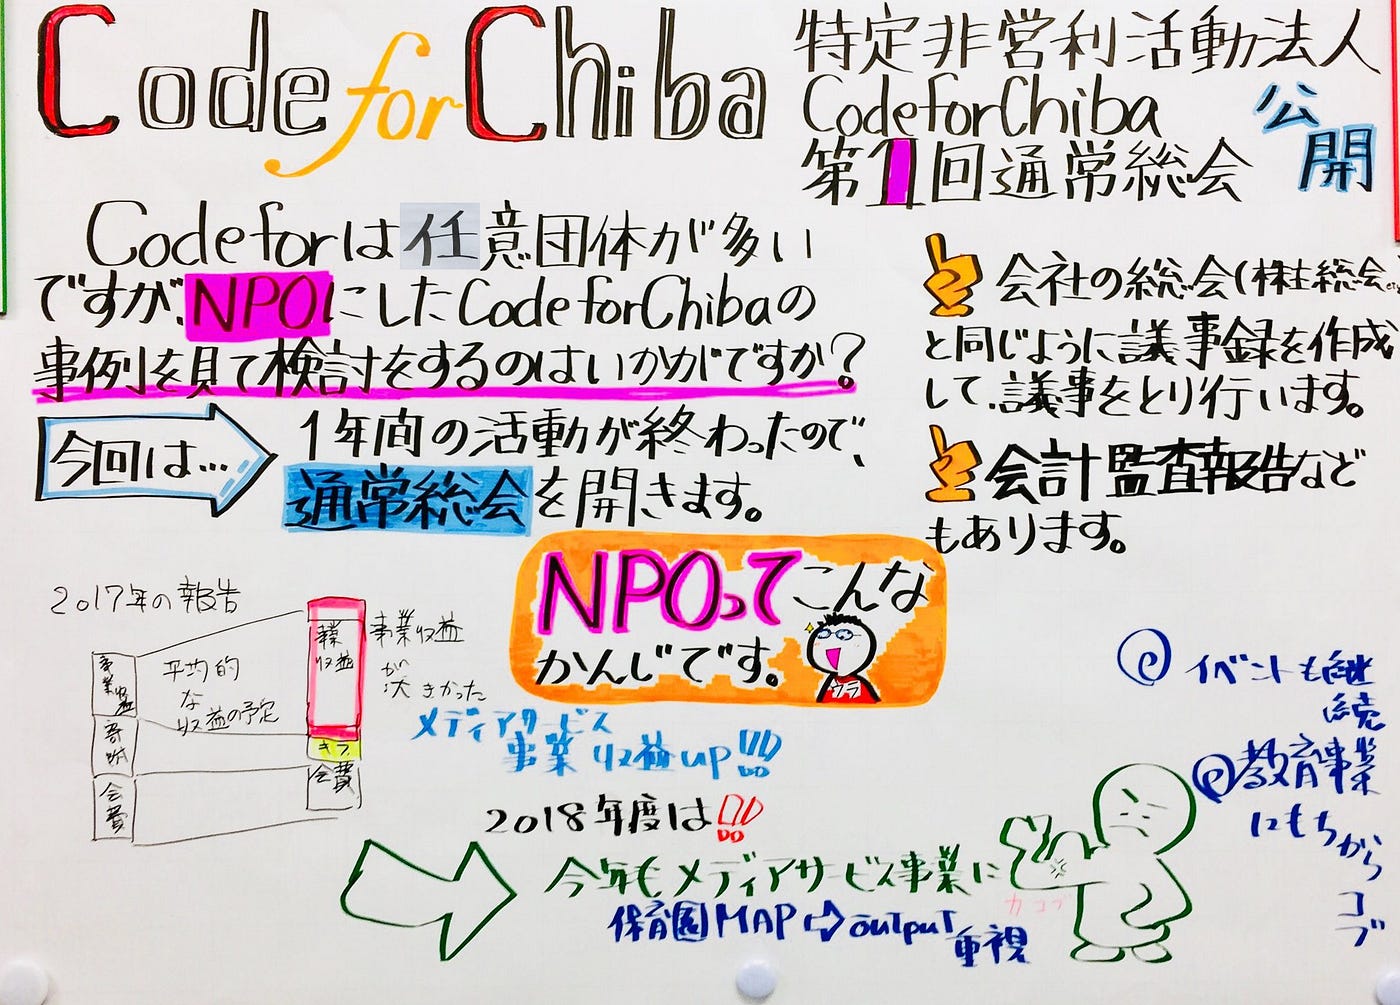 Code for Chiba
特定非営利活動法人
CodeforChiba
第1回通常総会
公開
Codeforは任意団体が多い
ですが、NPOにしたCodeforChibaの
事例を見て検討をするのはいかがですか?
今回は…
1年間の活動が終わったので、
通常総会を開きます。
会社の総会(株主総会
と同じように議事録を作成
して、議事をとり行います。
会計監査報告など
もあります。
NPOってこんな
かんじです。
ウラ
2017年の報告
事業収益
寄附
会費
平均的
な
収益の予定
事業
収益
キフ
会費
事業収益
が
大きかった
メディアサービス
事業収益up!!!
2018年度は!!!
今年もメディアサービス事業に
保育園MAP⇨output
重視
カコブ
イベントも継
続
教育事業
にもちから
コブ